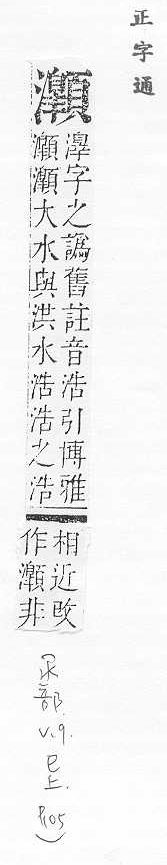 正字通
灝
字之譌舊註音浩引博雅
灝灝大水與洪水浩浩之浩
相近改
作灝非
(水部. V.9. 巳上. P.105)